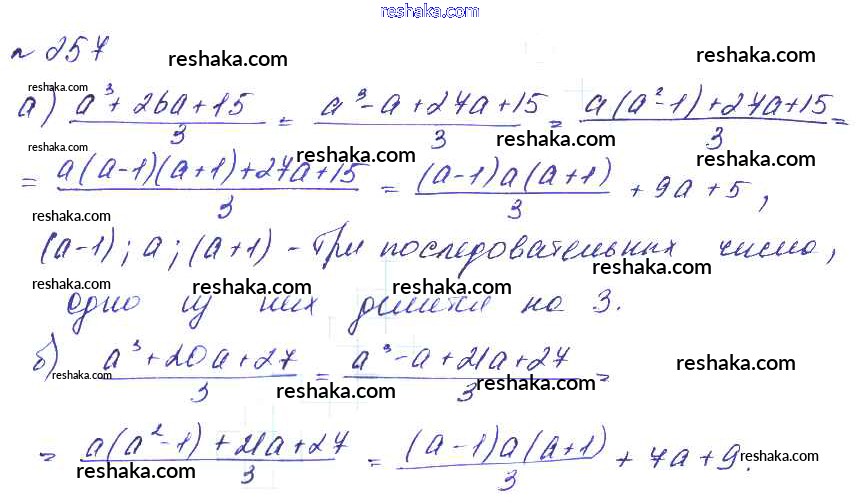 reshaka.com
№ 257 reshaka.com reshaka.com
reshaka.com
а) (a³ + 26a + 15)/3 = (a³ - a + 27a + 15)/3 = (a(a² - 1) + 27a + 15)/3 =
reshaka.com reshaka.com reshaka.com reshaka.com
= (a(a-1)(a+1) + 27a + 15)/3 = ((a-1)a(a+1))/3 + 9a + 5,
reshaka.com reshaka.com reshaka.com
(a-1); a; (a+1) - три последовательных числа,
reshaka.com reshaka.com reshaka.com
одно из них делится на 3.
б) (a³ + 20a + 27)/3 = (a³ - a + 21a + 27)/3 =
reshaka.com reshaka.com reshaka.com reshaka.com
= (a(a² - 1) + 21a + 27)/3 = ((a-1)a(a+1))/3 + 7a + 9.
reshaka.com reshaka.com reshaka.com